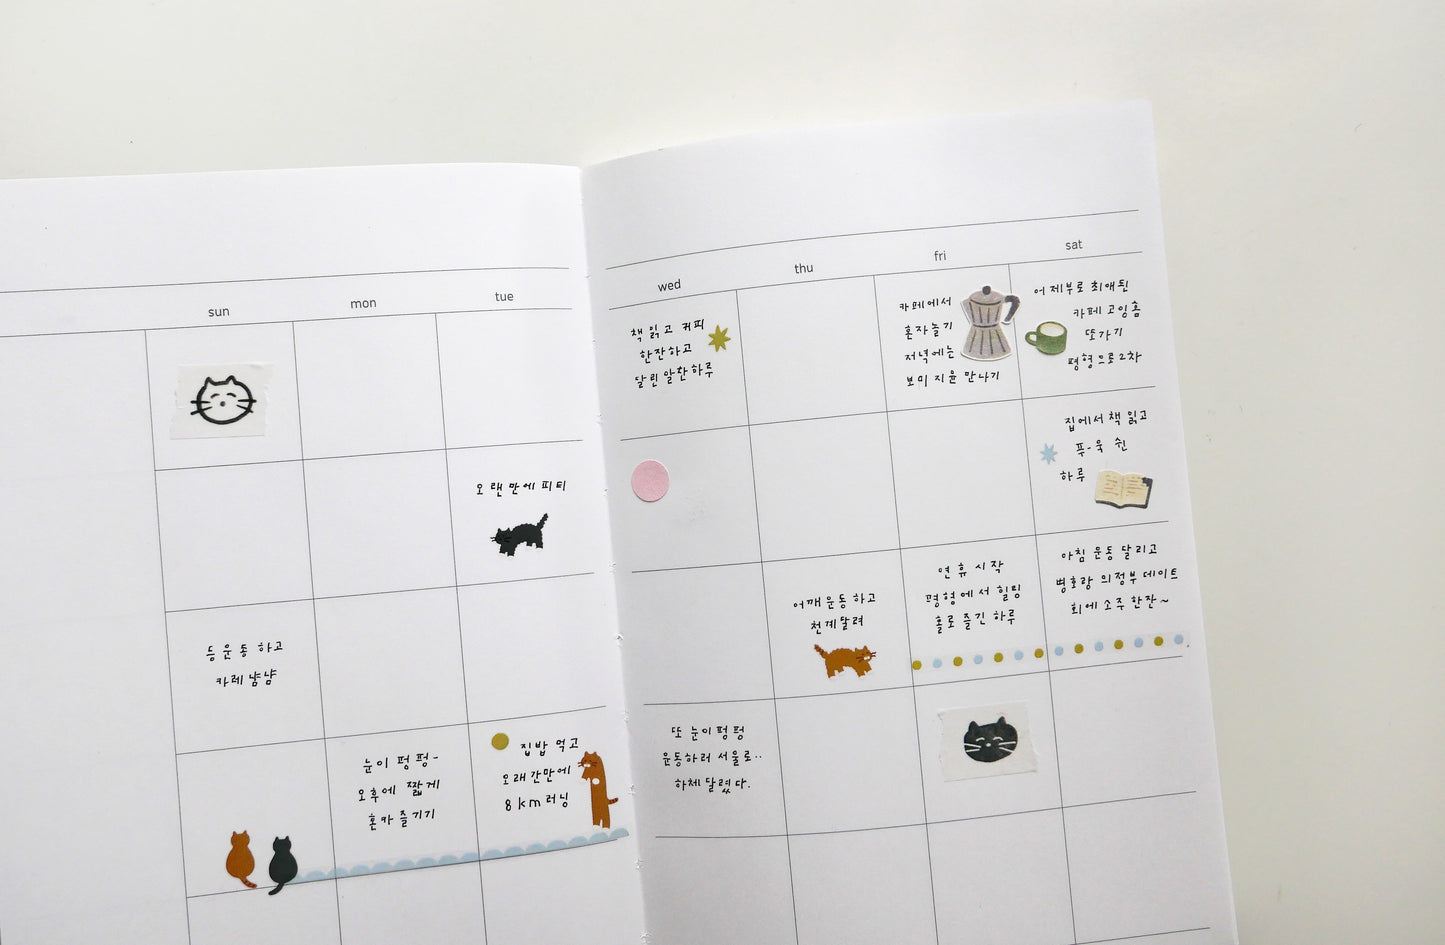 sun
mon
tue
wed
thu
fri
sat
책 읽고 커피
한잔하고
달린 알찬하루
카페에서
혼자놀기
저녁에는
보미 지윤 만나기
어제부로 최애된
카페 고잉홈
또가기
평형으로 2차
오랜만에 피티
집에서 책 읽고
푸-욱 쉰
하루
등운동 하고
카레 냠냠
어깨운동하고
천계달려
연휴 시작
평형에서 힐링
홀로 즐긴 하루
아침 운동 달리고
병호랑 의정부 데이트
회에 소주 한잔~
눈이 펑펑-
오후에 짧게
혼카 즐기기
집밥 먹고
오래간만에
8km 러닝
또 눈이 펑펑
운동하러 서울로..
하체달렸다.